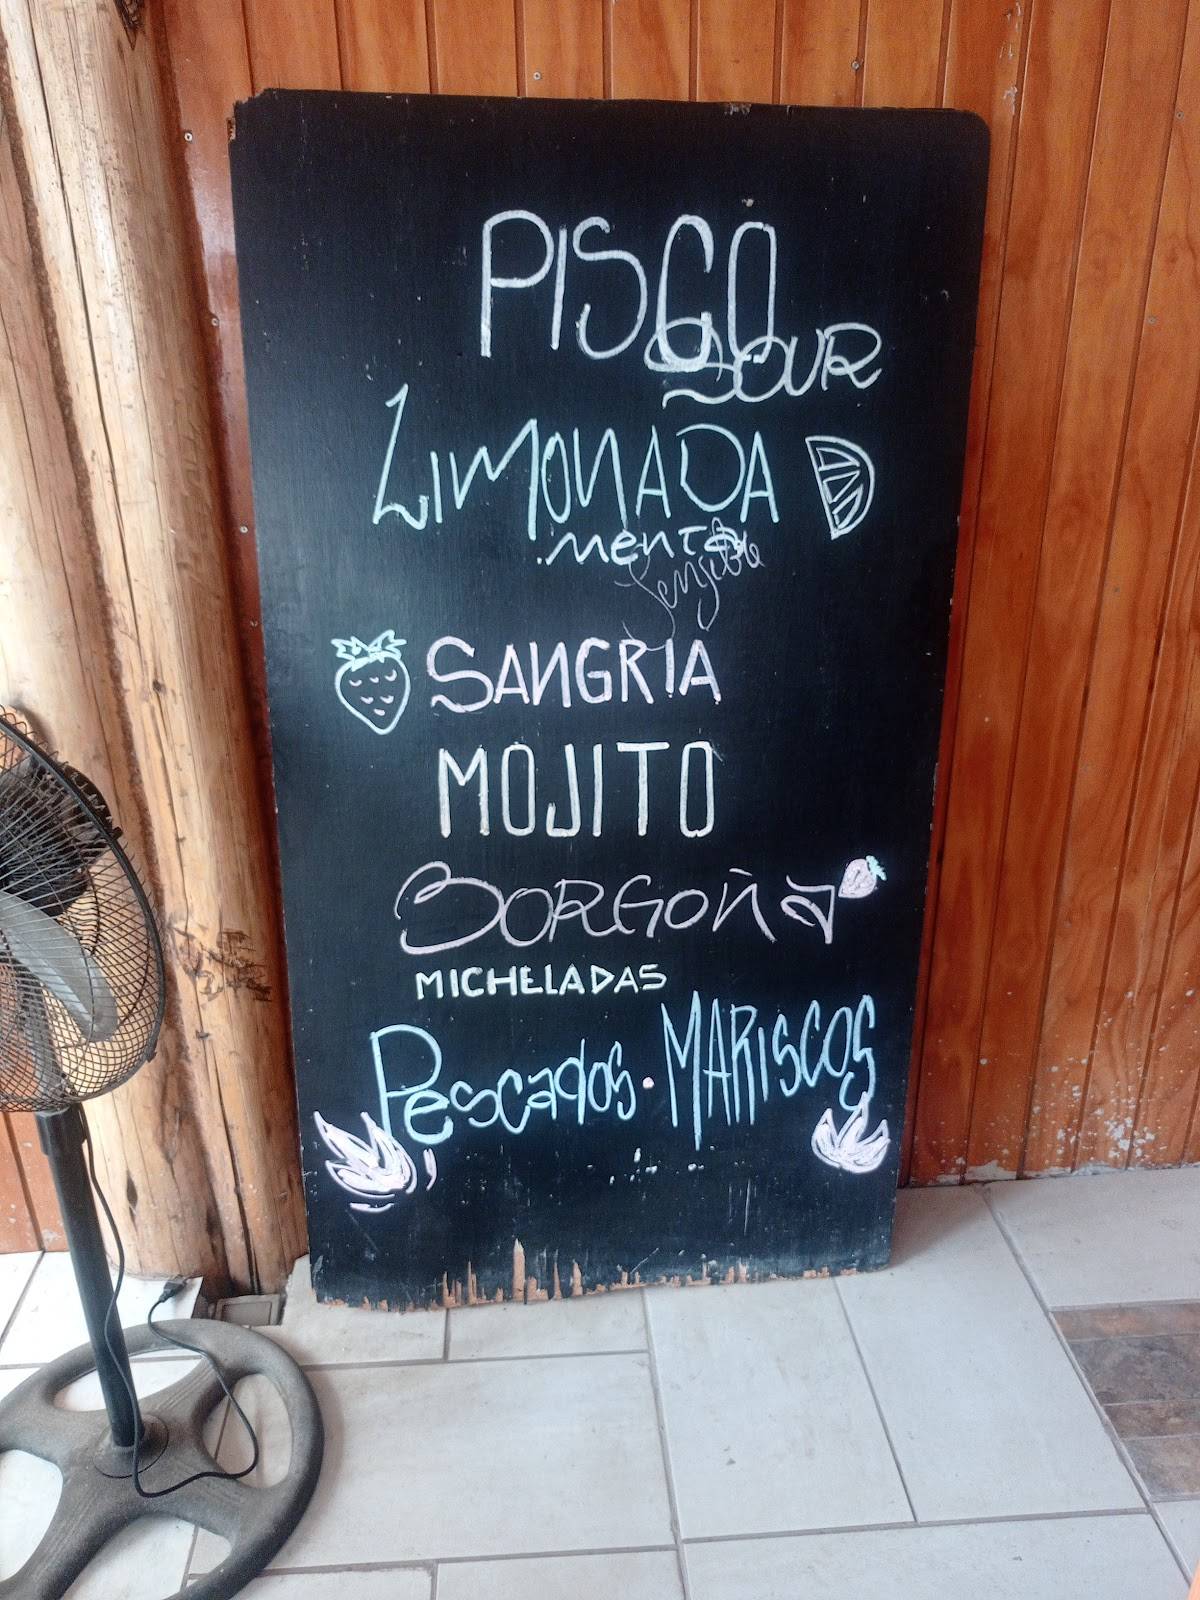 PISCO
SOUR
LIMONADA
menta
Jengibre
SANGRIA
MOJITO
BORGOÑA
MICHELADAS
Pescados · MARISCOS